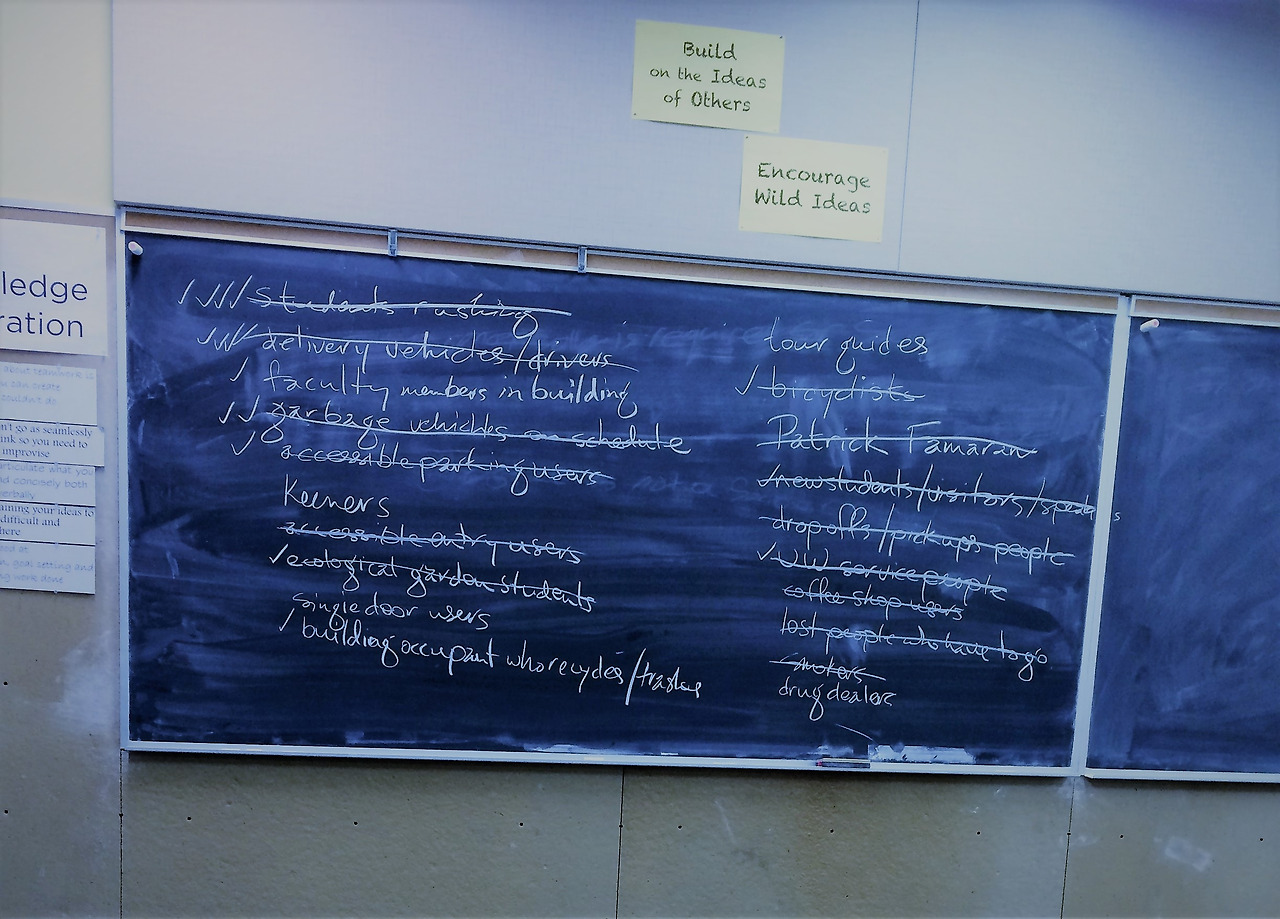 Build
on the Ideas
of Others
Encourage
Wild Ideas
ledge
ration
about teamwork is
u can create
couldn't do
n't go as seamlessly
ink so you need to
improvise
articulate what you
nd concisely both
verbally
aining your ideas to
difficult and
here
ood at
n, goal setting and
ng work done
Students rushing
delivery vehicles/drivers
faculty members in building
garbage vehicles on schedule
accessible parking users
Keeners
accessible entry users
ecological garden students
single door users
building occupant who recycles/trashes
tour guides
bicyclists
Patrick Famaran
new students/visitors/speakers
dropoffs/pickups people
UW service people
coffee shop users
lost people who have to go
smokers
drug dealers